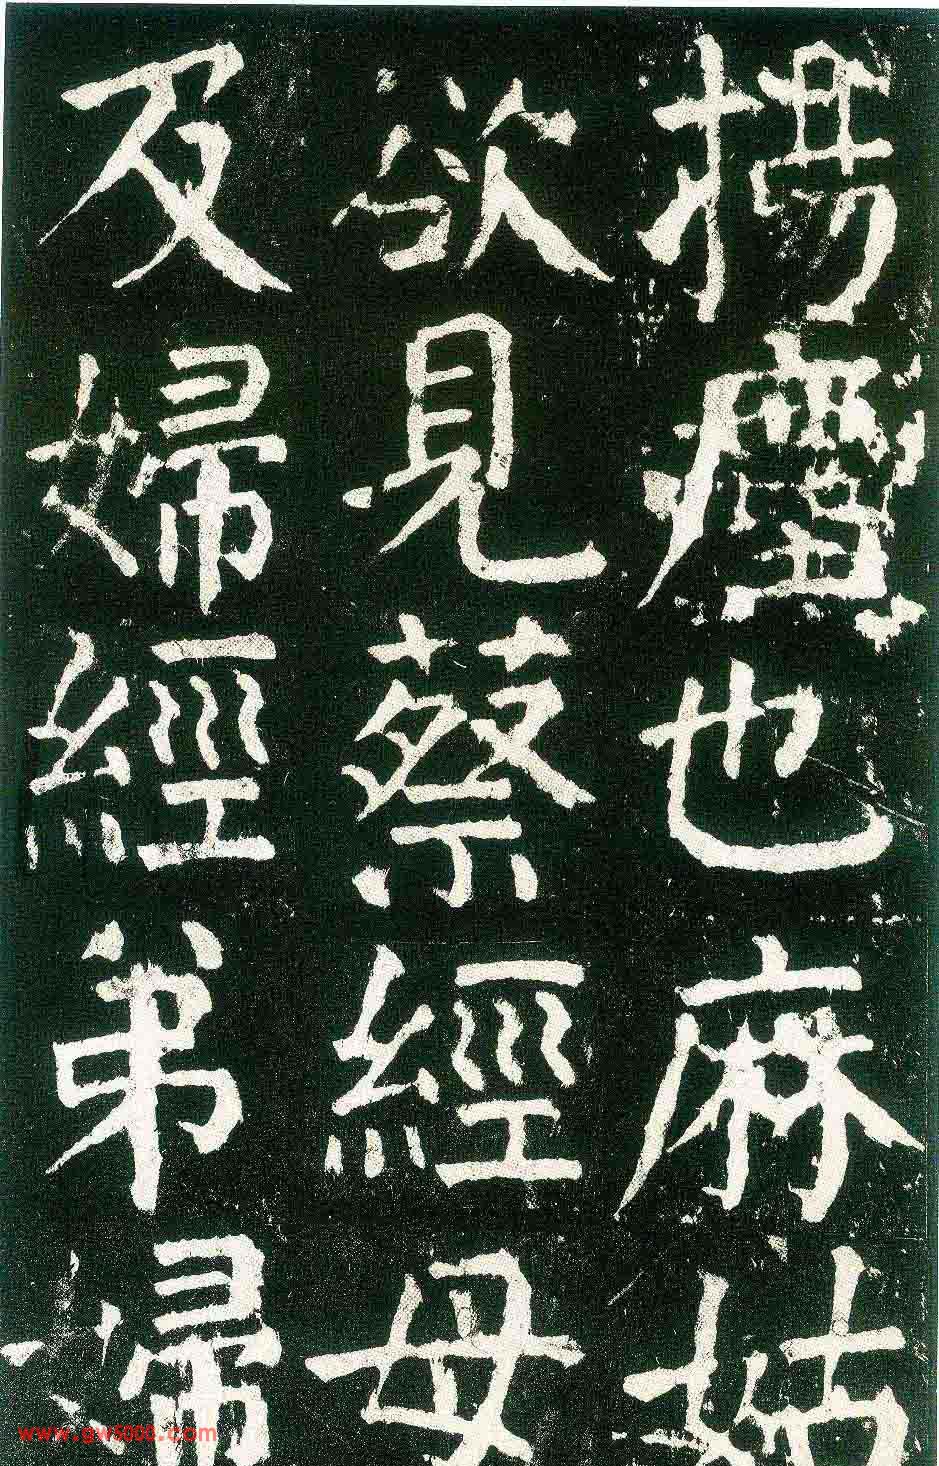 揚塵也麻姑
欲見蔡經母
及婦經弟婦
www.gw5000.com